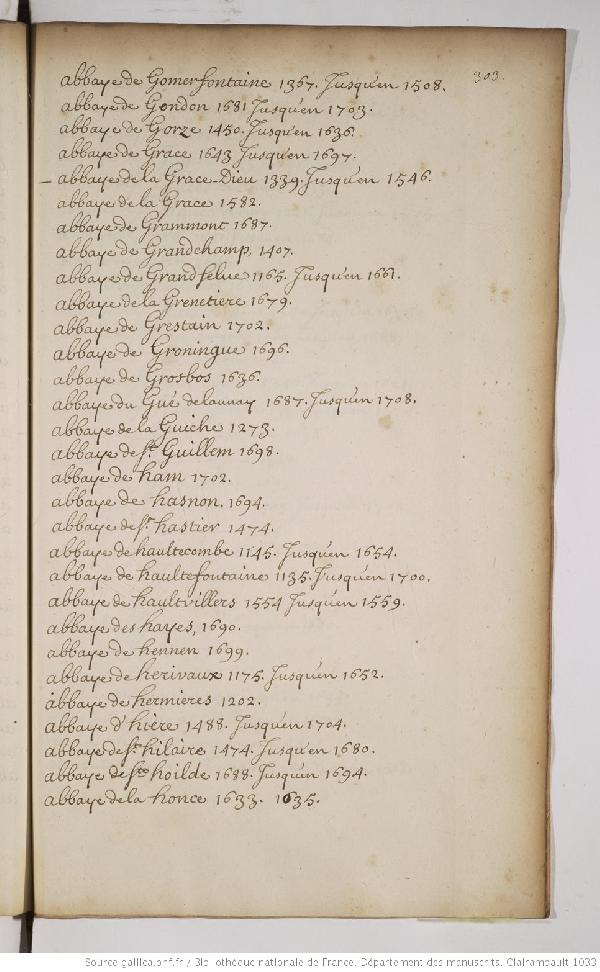 303.
abbaye de Gomerfontaine 1367. Jusqu'en 1508.
abbaye de Gondon 1681 Jusqu'en 1703.
abbaye de Gorze 1450. Jusqu'en 1636.
abbaye de Grace 1643 Jusqu'en 1697.
– abbaye de la Grace-Dieu 1339. Jusqu'en 1546.
abbaye de la Grace 1582.
abbaye de Grammont 1687.
abbaye de Grandchamp, 1407.
abbaye de Grandselue 1165. Jusqu'en 1661.
abbaye de la Grenetiere 1679.
abbaye de Grestain 1702.
abbaye de Groningue 1696.
abbaye de Grosbos 1636.
abbaye du Gué de launay 1687. Jusqu'in 1708.
abbaye de la Guiche 1273.
abbaye de St. Guillem 1698.
abbaye de ham 1702.
abbaye de hasnon, 1694.
abbaye de St. hastier 1474.
abbaye de haultecombe 1145. Jusqu'en 1654.
abbaye de haultefontaine 1135. Jusqu'en 1700.
abbaye de haultvillers 1554 Jusqu'en 1559.
abbaye des hayes, 1690.
abbaye de hennen 1699.
abbaye de herivaux 1175. Jusqu'en 1652.
abbaye de hermieres 1202.
abbaye d'hiere 1488. Jusqu'en 1704.
abbaye de St. hilaire 1474. Jusqu'en 1680.
abbaye de Ste hoilde 1688. Jusqu'en 1694.
abbaye de la honce 1633. 1635.
Source gallica.bnf.fr / Bibliothèque nationale de France. Département des manuscrits. Clairambault 1033